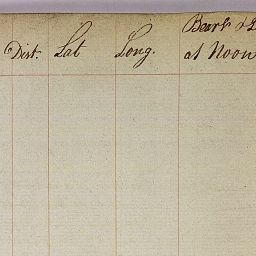 Dist. Lat Long. Bear.s & D
at Noon